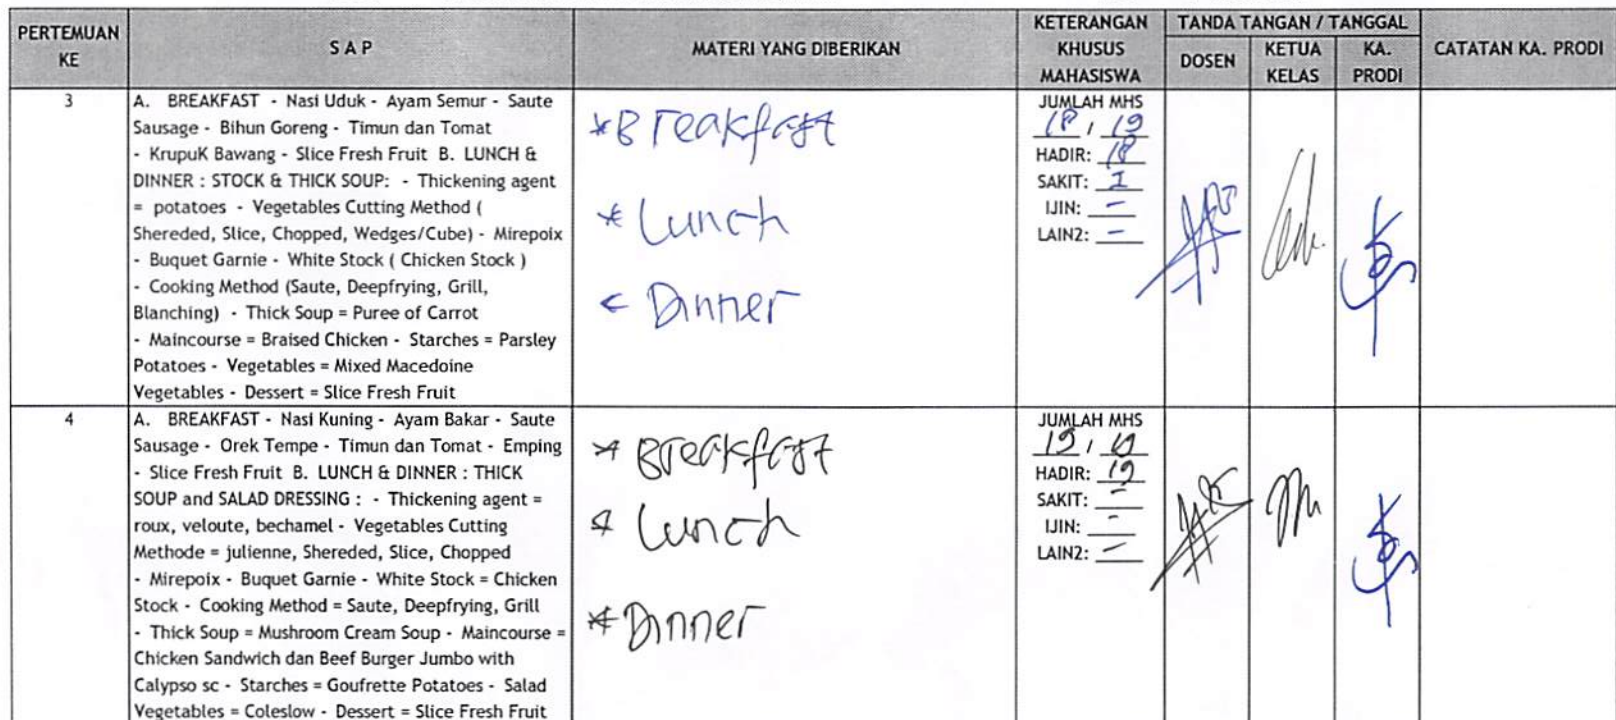 PERTEMUAN KE
S A P
MATERI YANG DIBERIKAN
KETERANGAN KHUSUS MAHASISWA
TANDA TANGAN / TANGGAL
DOSEN
KETUA KELAS
KA. PRODI
CATATAN KA. PRODI
3
A. BREAKFAST - Nasi Uduk - Ayam Semur - Saute
Sausage - Bihun Goreng - Timun dan Tomat
- KrupuK Bawang - Slice Fresh Fruit B. LUNCH &
DINNER : STOCK & THICK SOUP: - Thickening agent
= potatoes - Vegetables Cutting Method (
Shereded, Slice, Chopped, Wedges/Cube) - Mirepoix
- Buquet Garnie - White Stock ( Chicken Stock )
- Cooking Method (Saute, Deepfrying, Grill,
Blanching) - Thick Soup = Puree of Carrot
- Maincourse = Braised Chicken - Starches = Parsley
Potatoes - Vegetables = Mixed Macedoine
Vegetables - Dessert = Slice Fresh Fruit
* Breakfast
* Lunch
Dinner
JUMLAH MHS
18 / 19
HADIR: 18
SAKIT: 1
IJIN: -
LAIN2: -
4
A. BREAKFAST - Nasi Kuning - Ayam Bakar - Saute
Sausage - Orek Tempe - Timun dan Tomat - Emping
- Slice Fresh Fruit B. LUNCH & DINNER : THICK
SOUP and SALAD DRESSING : - Thickening agent =
roux, veloute, bechamel - Vegetables Cutting
Methode = julienne, Shereded, Slice, Chopped
- Mirepoix - Buquet Garnie - White Stock = Chicken
Stock - Cooking Method = Saute, Deepfrying, Grill
- Thick Soup = Mushroom Cream Soup - Maincourse =
Chicken Sandwich dan Beef Burger Jumbo with
Calypso sc - Starches = Goufrette Potatoes - Salad
Vegetables = Coleslow - Dessert = Slice Fresh Fruit
* Breakfast
* Lunch
* Dinner
JUMLAH MHS
19 / 19
HADIR: 19
SAKIT: -
IJIN: -
LAIN2: -